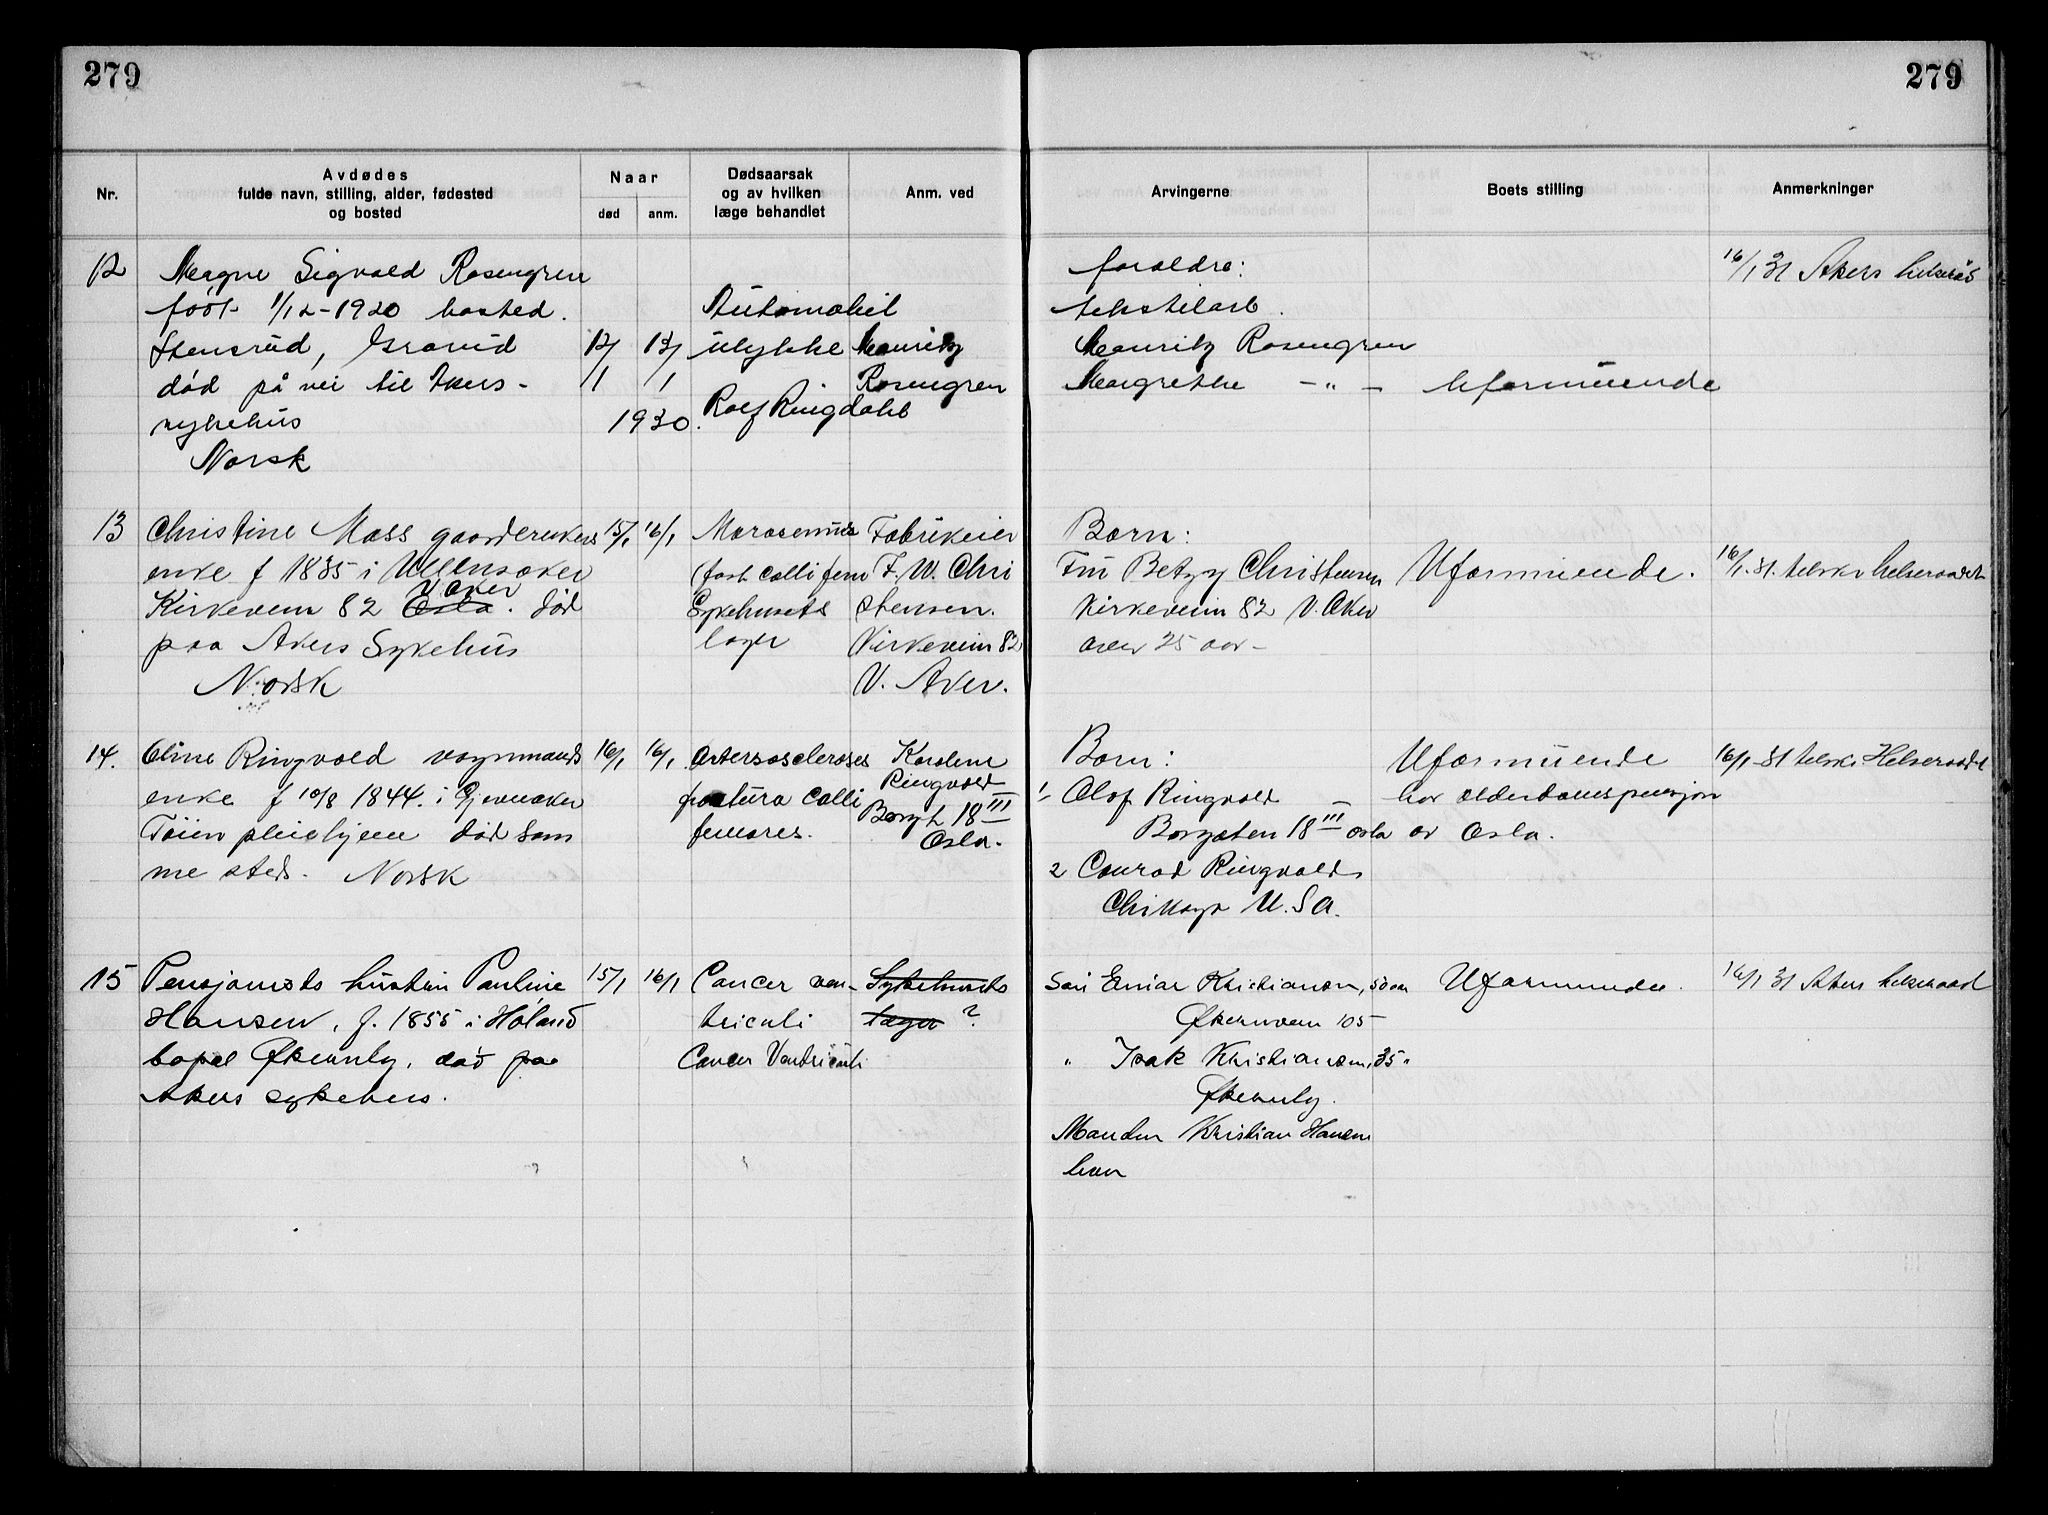 279
279
Nr.
Avdødes
fulde navn, stilling, alder, fødested
og bosted
Naar
død
anm.
Dødsaarsak
og av hvilken
læge behandlet
Anm. ved
Arvingerne
Boets stilling
Anmerkninger
12
Magne Sigvald Rosengren
født 1/12-1920 bosted.
Stensrud,
død på vei til Akers-
sykehus
Norsk
12/1
13/1
1930.
Automobil
ulykke
Rolf Ringdahl
Mauritz
Rosengren
foreldre:
tekstilarb.
Mauritz Rosengren
Margrethe -"-
Uformuende
16/1 31 Akers helseråd
13
Christine Moss gaarderuker
enke f 1835 i Ullensaker
V. Aker
Kirkeveien 82 Oslo. død
paa Akers Sykehus
Norsk
15/1
16/1
Marasmus
(frakt. colli fem
Sykehusets
læger
Fabrikeier
F. W. Chri
stensen.
Kirkeveien 82
V. Aker.
Børn:
Fru Betzy Christensen
Kirkeveien 82 V. Aker
over 25 aar-
Uformuende.
16/1-31. helseraadet
14.
Eline Ringvold vognmands
enke f 10/8 1844. i Gjevnaker
Tøien pleiehjem død sam
me sted. Norsk
16/1
16/1
Artersosclerosis
fractura Colli
femores.
Karoline
Ringvold
Borgt 18 III
Oslo.
Børn:
1- Olof Ringvold
Borgaten 18 III Oslo
2 Conrad Ringvold
Chikago U.S.A.
Uformuende
har alderdomspensjon
av Oslo.
16/1-31 Helseraadet
15
Pensjonists hustru Pauline
Hansen, f. 1855 i Høland
bopæl Økernby, død paa
Akers sykehus.
15/1
16/1
Cancer ven-
triculi
Cancer Ventriculi
Sykehusets
læger ?
Søn Einar Kristiansen, 50 aar
Økernveien 105
" Isak Kristiansen, 35 "
Økernby.
Manden Kristian Hansen
Uformuende.
16/1 31 Akers helseraad